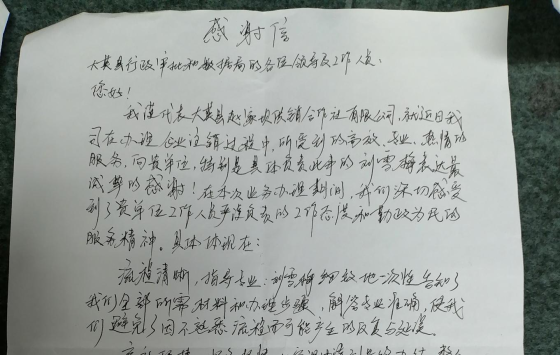 感谢信
大英县行政审批和数据局的各位领导及工作人员：
您好！
我谨代表大英县赵家坝供销合作社有限公司，就近日我
司在办理企业注销过程中，所受到的高效、专业、热情的
服务，向贵单位，特别是具体负责此事的刘雪梅表达最
诚挚的感谢！在本次业务办理期间，我们深切感受
到了贵单位工作人员严谨负责的工作态度和勤政为民的
服务精神。具体体现在：
流程清晰，指导专业：刘雪梅细致地一次性告知了
我们全部所需材料和办理步骤，解答专业准确，使我
们避免了因不熟悉流程而可能产生的反复与延误。